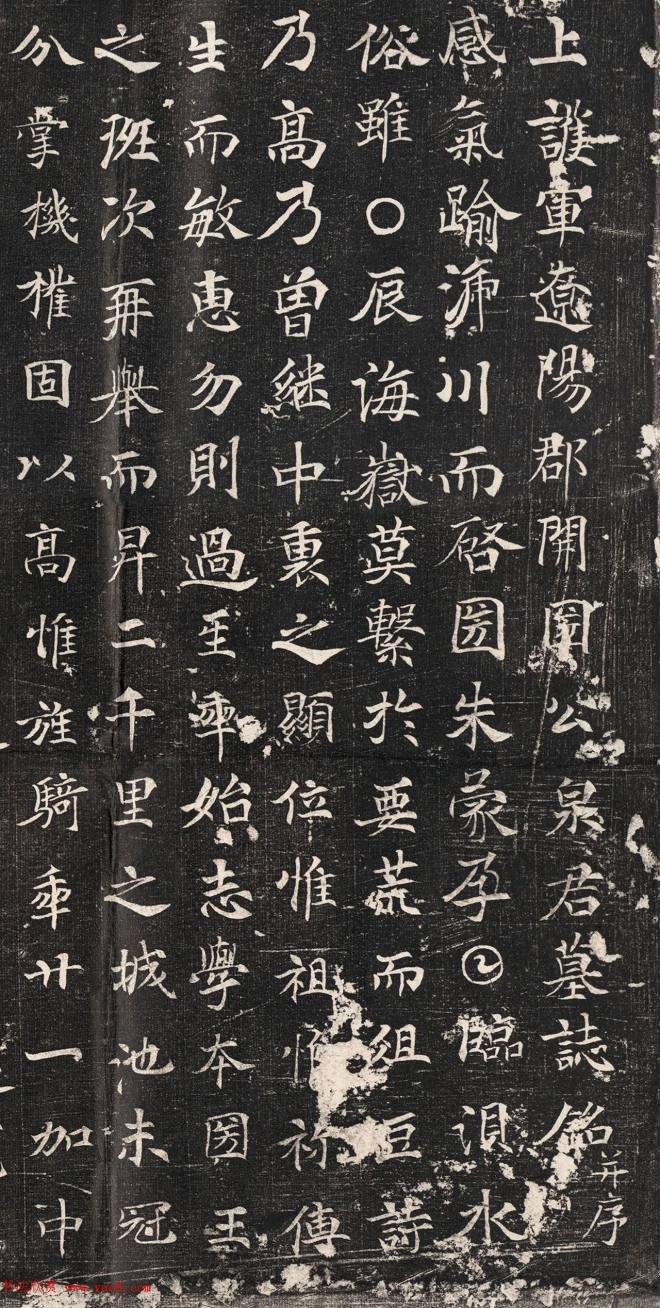 上護軍遼陽郡開圀公泉君墓誌銘并序
感氣踰㴲川而啓圀朱蒙孕𡆠臨浿水
俗雖〇辰海嶽莫繫於要荒而俎豆詩
乃高乃曾繼中裏之顯位惟祖惟祢傳
生而敏惠勿則過𤯔年始志學本圀王
之班次再舉而昇二千里之城池未冠
分掌機權固以高惟旌騎年廿一加中
书法欣赏 www.yac8.com